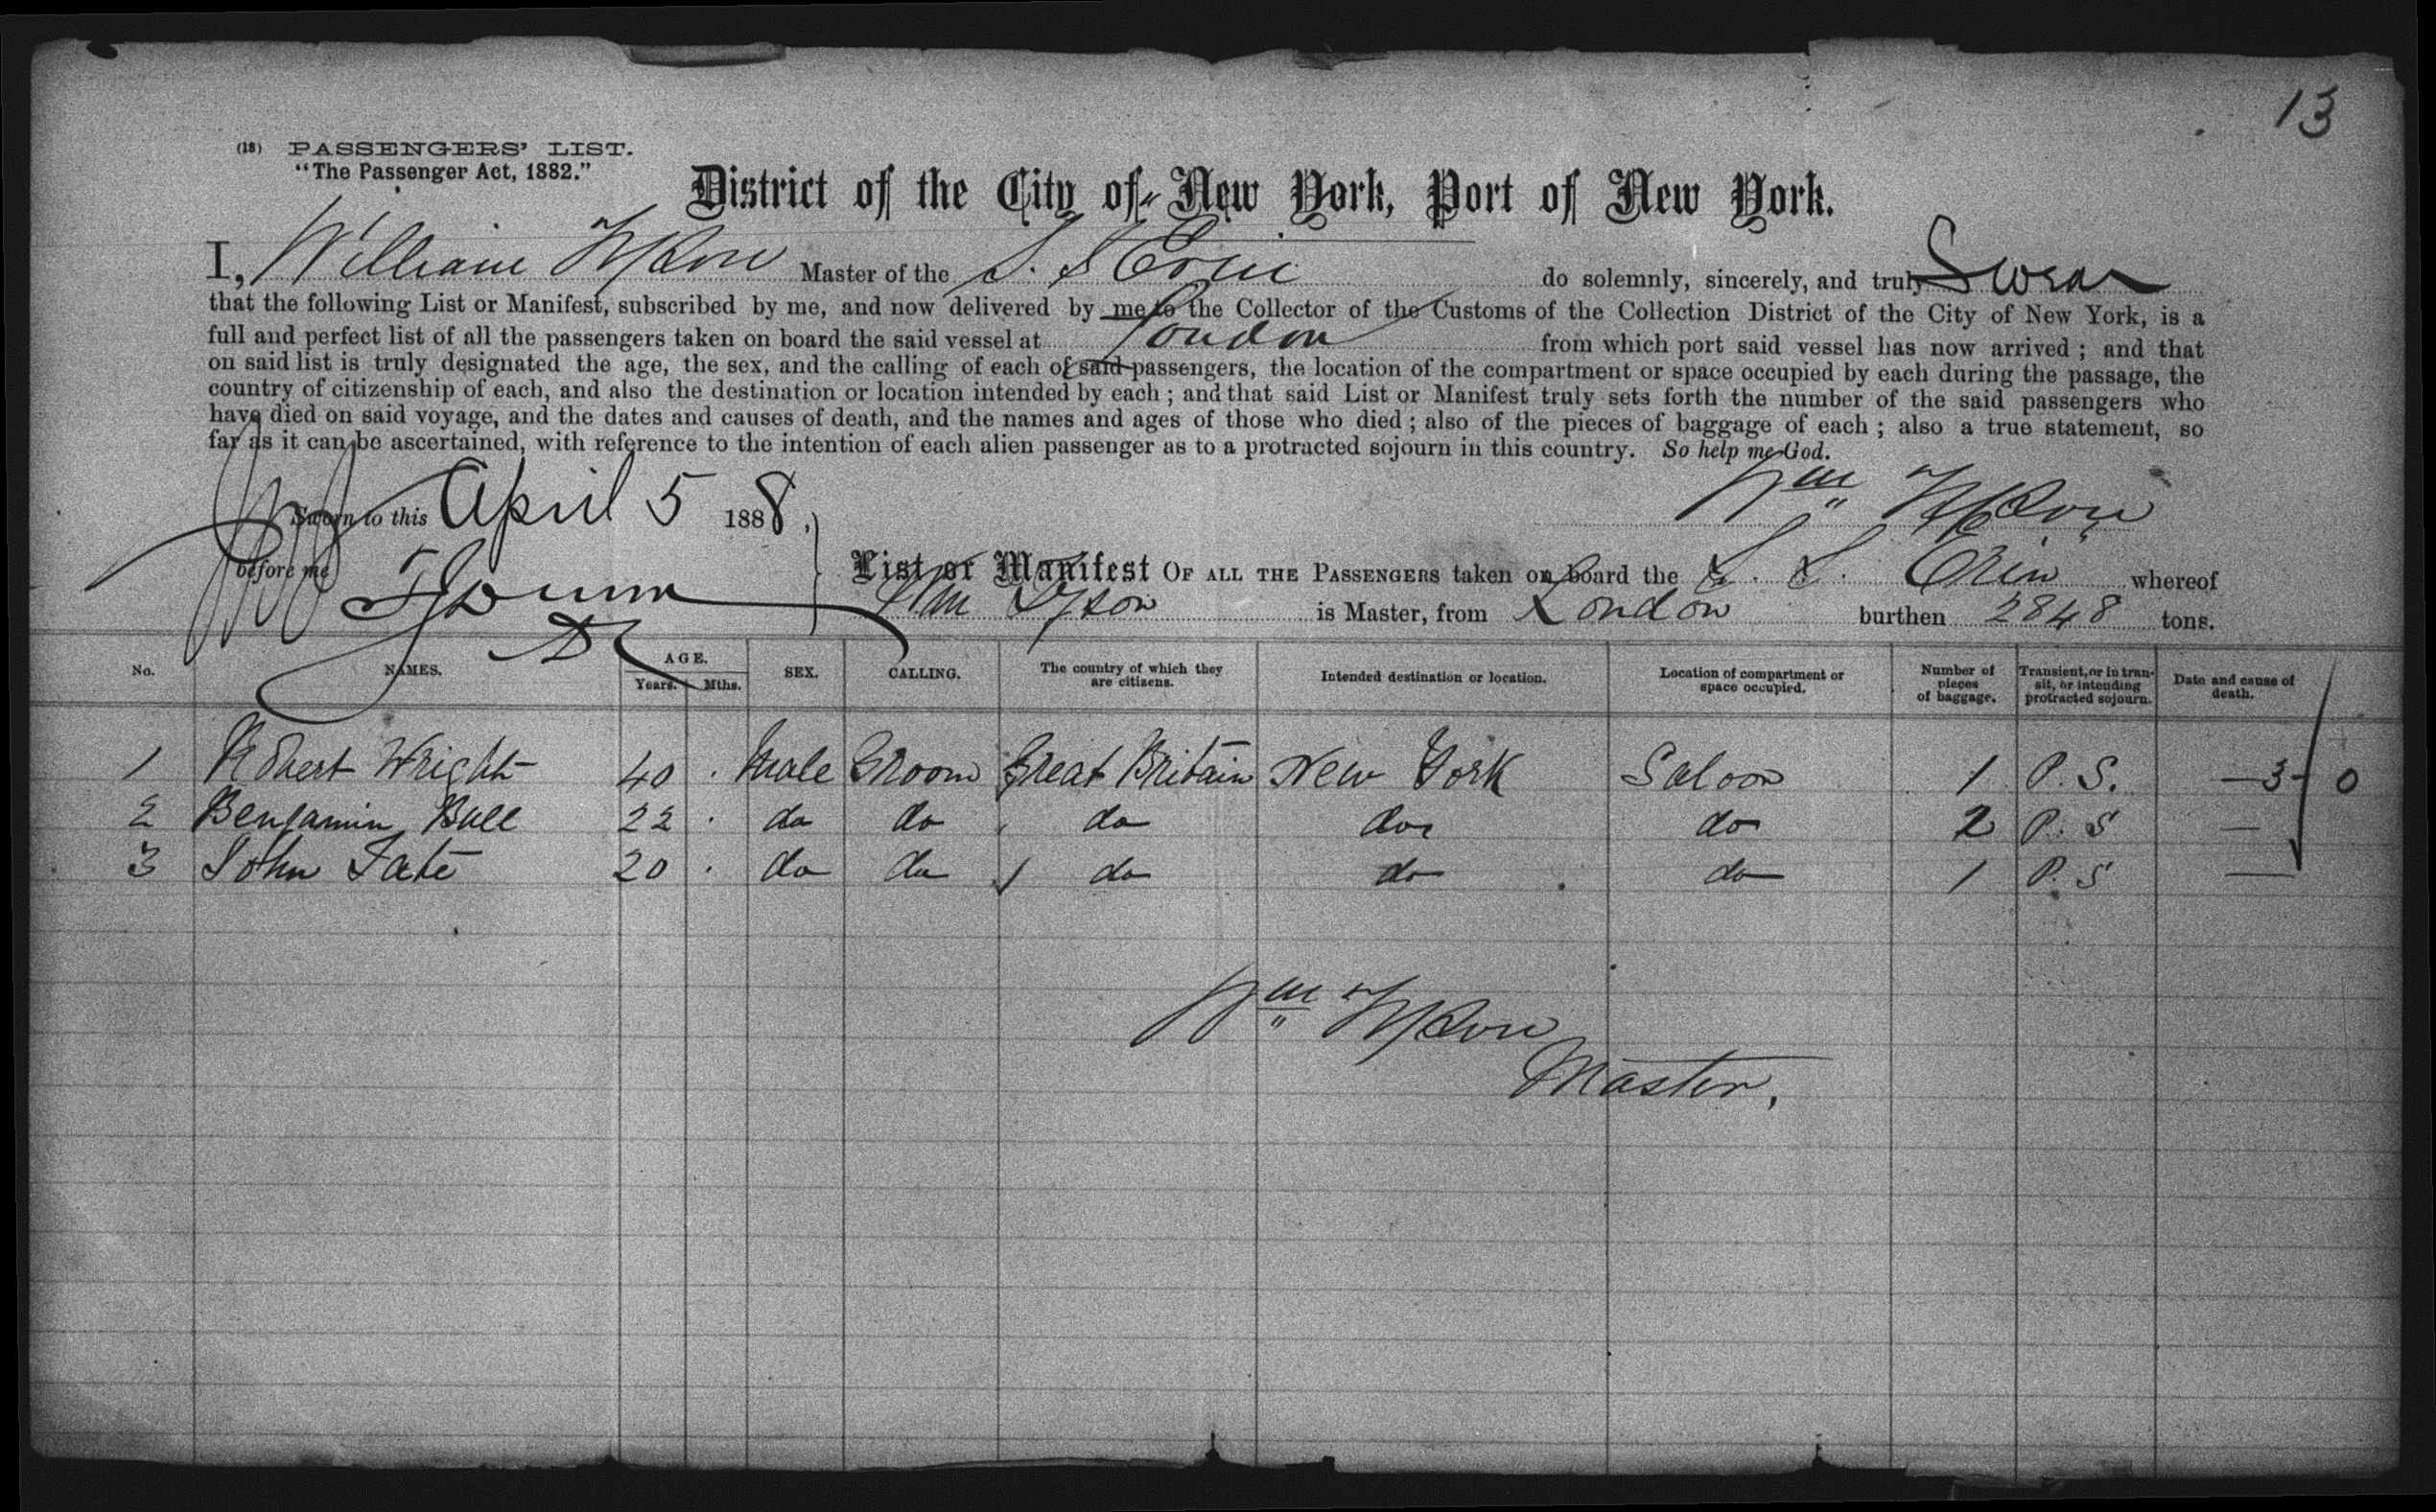 13
(18) PASSENGERS' LIST.
"The Passenger Act, 1882."
District of the City of New York, Port of New York.
I, William Tyson Master of the S. S Erin do solemnly, sincerely, and truly Swear
that the following List or Manifest, subscribed by me, and now delivered by me to the Collector of the Customs of the Collection District of the City of New York, is a
full and perfect list of all the passengers taken on board the said vessel at London from which port said vessel has now arrived ; and that
on said list is truly designated the age, the sex, and the calling of each of said passengers, the location of the compartment or space occupied by each during the passage, the
country of citizenship of each, and also the destination or location intended by each ; and that said List or Manifest truly sets forth the number of the said passengers who
have died on said voyage, and the dates and causes of death, and the names and ages of those who died ; also of the pieces of baggage of each ; also a true statement, so
far as it can be ascertained, with reference to the intention of each alien passenger as to a protracted sojourn in this country. So help me God.
Wm Tyson
Sworn to this April 5 1888.
before me
List or Manifest OF ALL THE PASSENGERS taken on board the S. S. Erin whereof
Wm Tyson is Master, from London burthen 2848 tons.
No. NAMES. AGE. Years. Mths. SEX. CALLING. The country of which they are citizens. Intended destination or location. Location of compartment or space occupied. Number of pieces of baggage. Transient, or in transit, or intending protracted sojourn. Date and cause of death.
1 Robert Wright 40 . Male Groom Great Britain New York Saloon 1 P. S. —3— 0
2 Benjamin Bull 22 . do do do do do 2 P. S —
3 John Tate 20 . do do do do do 1 P. S —
Wm Tyson
Master.